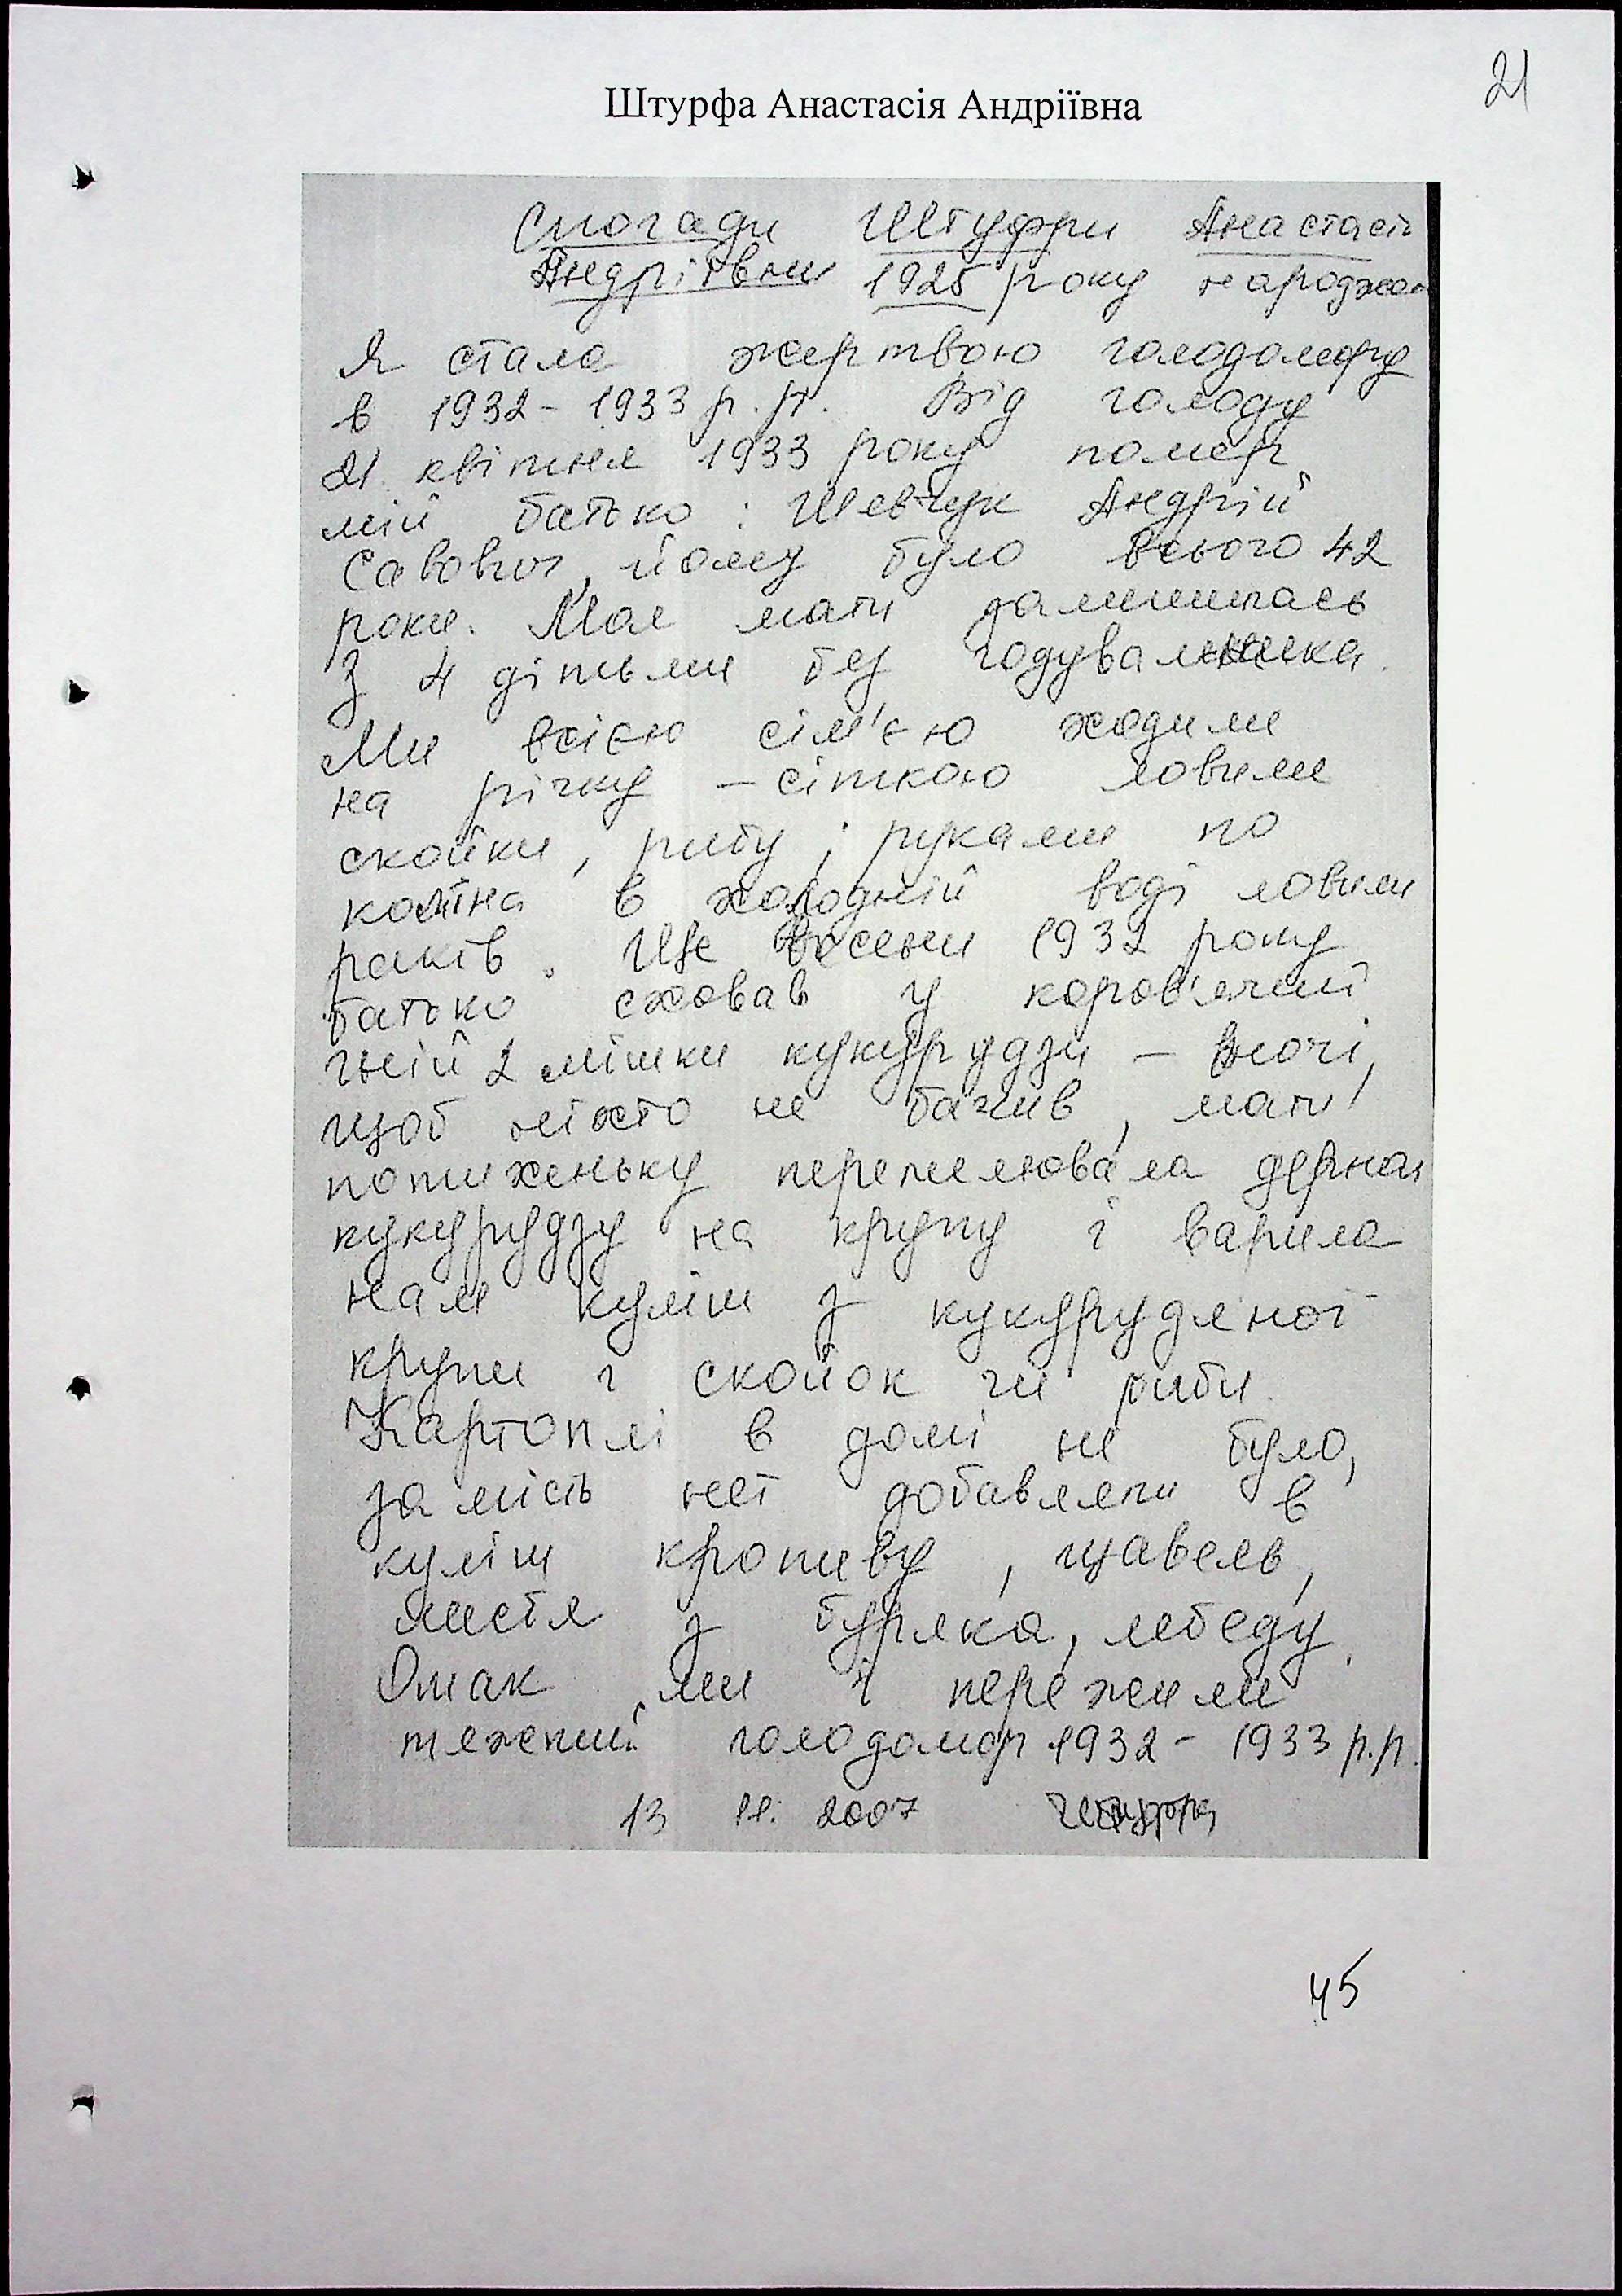 21
Штурфа Анастасія Андріївна
Спогади Штуфри Анастасії
Андріївни 1925 року народжен
Я стала жертвою голодомору
в 1932 - 1933 р.р. Від голоду
21 квітня 1933 року помер
мій батько : Шевчук Андрій
Савович, йому було всього 42
роки. Моя мати залишилась
з 4 дітьми без годувальника.
Ми всією сім'єю ходили
на річку – сіткою ловили
скойки, рибу ; руками по
коліна в холодній воді ловили
раків. Ще восени 1932 року
батько сховав у коров'ячий
гній 2 мішки кукурудзи – вночі,
щоб ніхто не бачив, мати
потихеньку перемелювала
кукурудзу на крупу і варила
нам куліш з кукурудяної
крупи і скойок чи риби.
Картоплі в домі не було,
замість неї добавляли в
куліш кропиву, щавель,
листя з буряка, лебеду.
Отак ми і пережили
тяжкий голодомор 1932 - 1933 р.р.
13 11. 2007 Штурфа
45